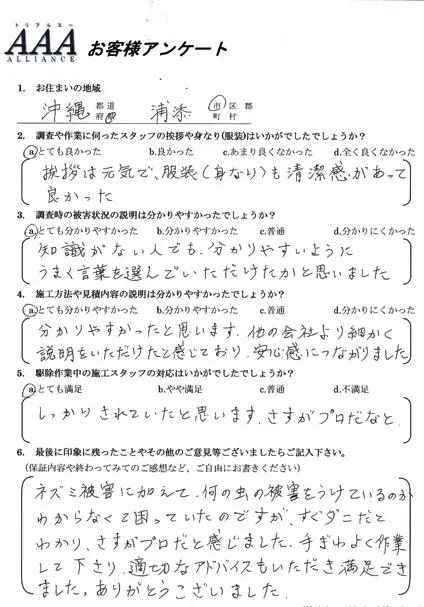 トリプルエー
AAA
ALLIANCE
お客様アンケート
1. お住まいの地域
沖縄 都道府県 浦添 市区郡町村
2. 調査や作業に伺ったスタッフの挨拶や身なり(服装)はいかがでしたでしょうか?
a.とても良かった b.良かった c.あまり良くなかった d.全く良くなかった
挨拶は元気で、服装(身なり)も清潔感があって
良かった
3. 調査時の被害状況の説明は分かりやすかったでしょうか?
a.とても分かりやすかった b.分かりやすかった c.普通 d.分かりにくかった
知識がない人でも、分かりやすいように
うまく言葉を選んでいただけたかと思いました
4. 施工方法や見積内容の説明は分かりやすかったでしょうか?
a.とても分かりやすかった b.分かりやすかった c.普通 d.分かりにくかった
分かりやすかったと思います。他の会社より細かく
説明をいただけたと感じており、安心感につながりました
5. 駆除作業中の施工スタッフの対応はいかがでしたでしょうか?
a.とても満足 b.やや満足 c.普通 d.不満足
しっかりされていたと思います。さすがプロだなと、
6. 最後に印象に残ったことやその他のご意見等ございましたらご記入下さい。
(保証内容や終わってみてのご感想など、ご自由にお書きください)
ネズミ被害に加えて、何の虫の被害をうけているのか
わからなくて困っていたのですが、すぐダニだと
わかり、さすがプロだと感じました。手ぎわよく作業
して下さり、適切なアドバイスもいただき満足でき
ました。ありがとうございました。